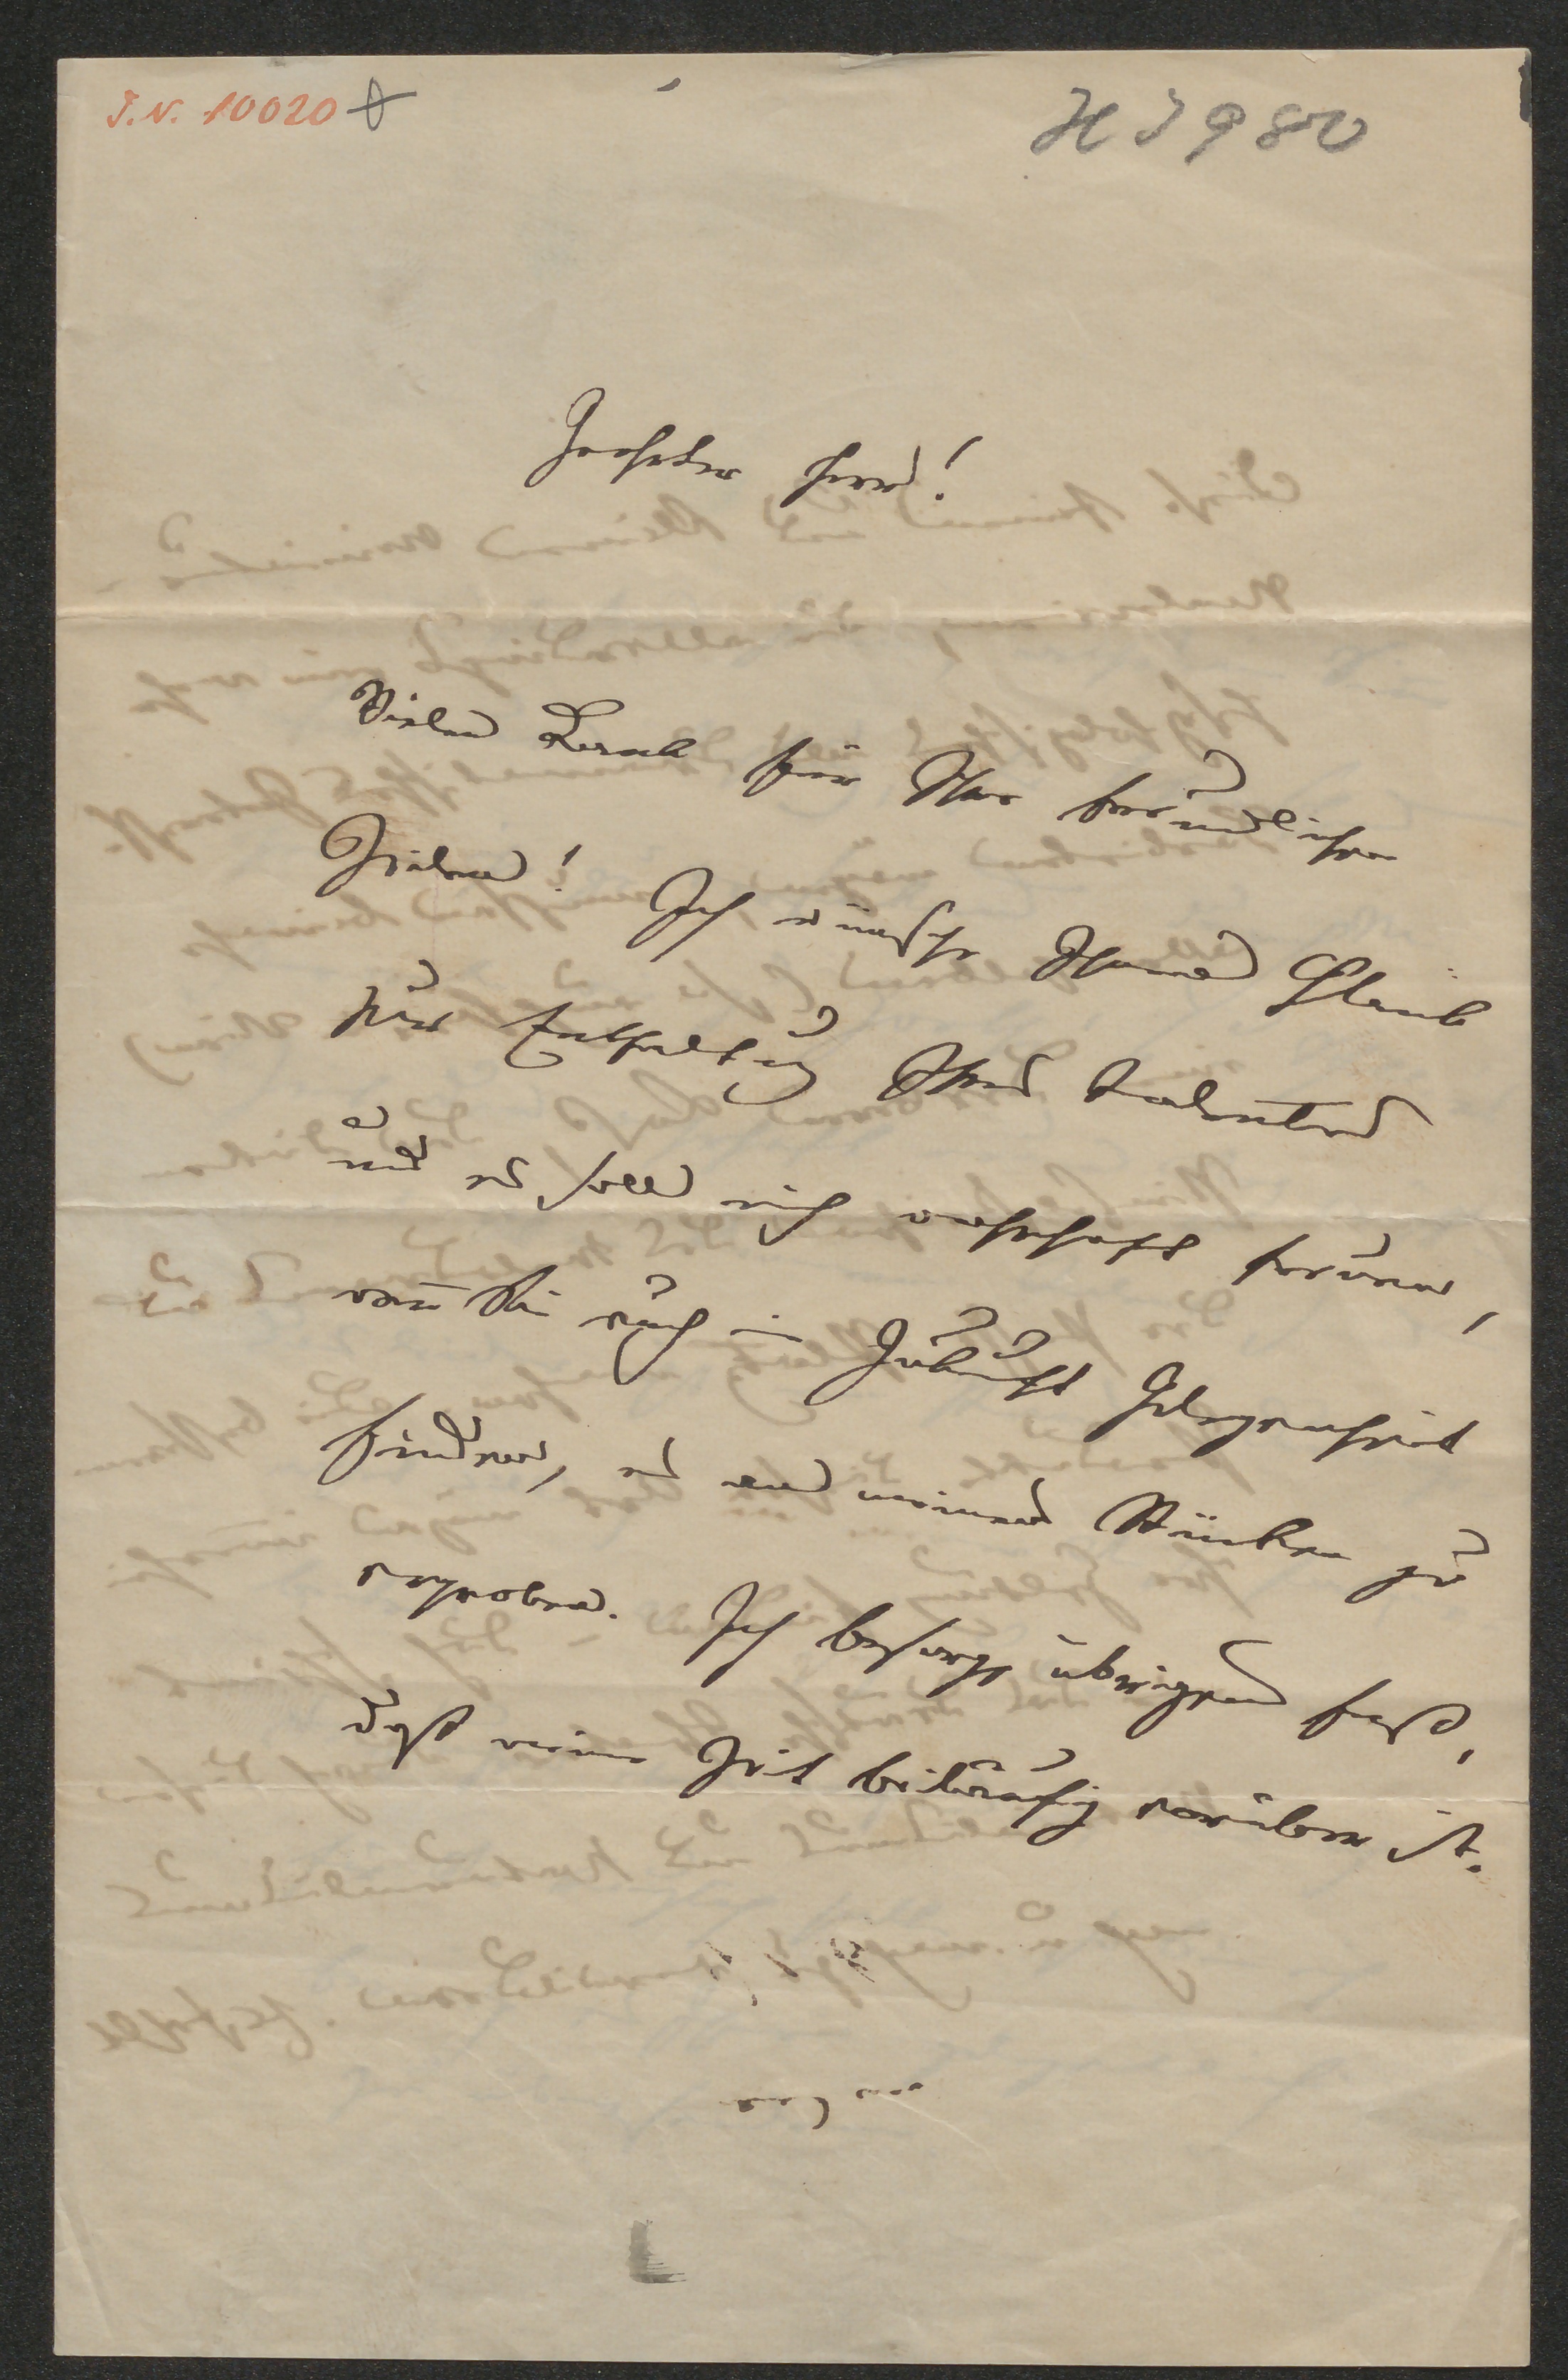 I.N. 10020
H I 9 800
Geehrter Herr!
Vielen Dank für Ihre freundlichen
Zeilen! Ich wünsche Ihnen Glück
zur Entfaltung Ihres Talentes
und es soll mich wahrhaft freuen,
wenn Sie auch in Zukunft Gelegenheit
finden, es an meinen Stücken zu
erproben. Ich besorge übrigens fast,
daß meine Zeit beiläufig vorüber ist.